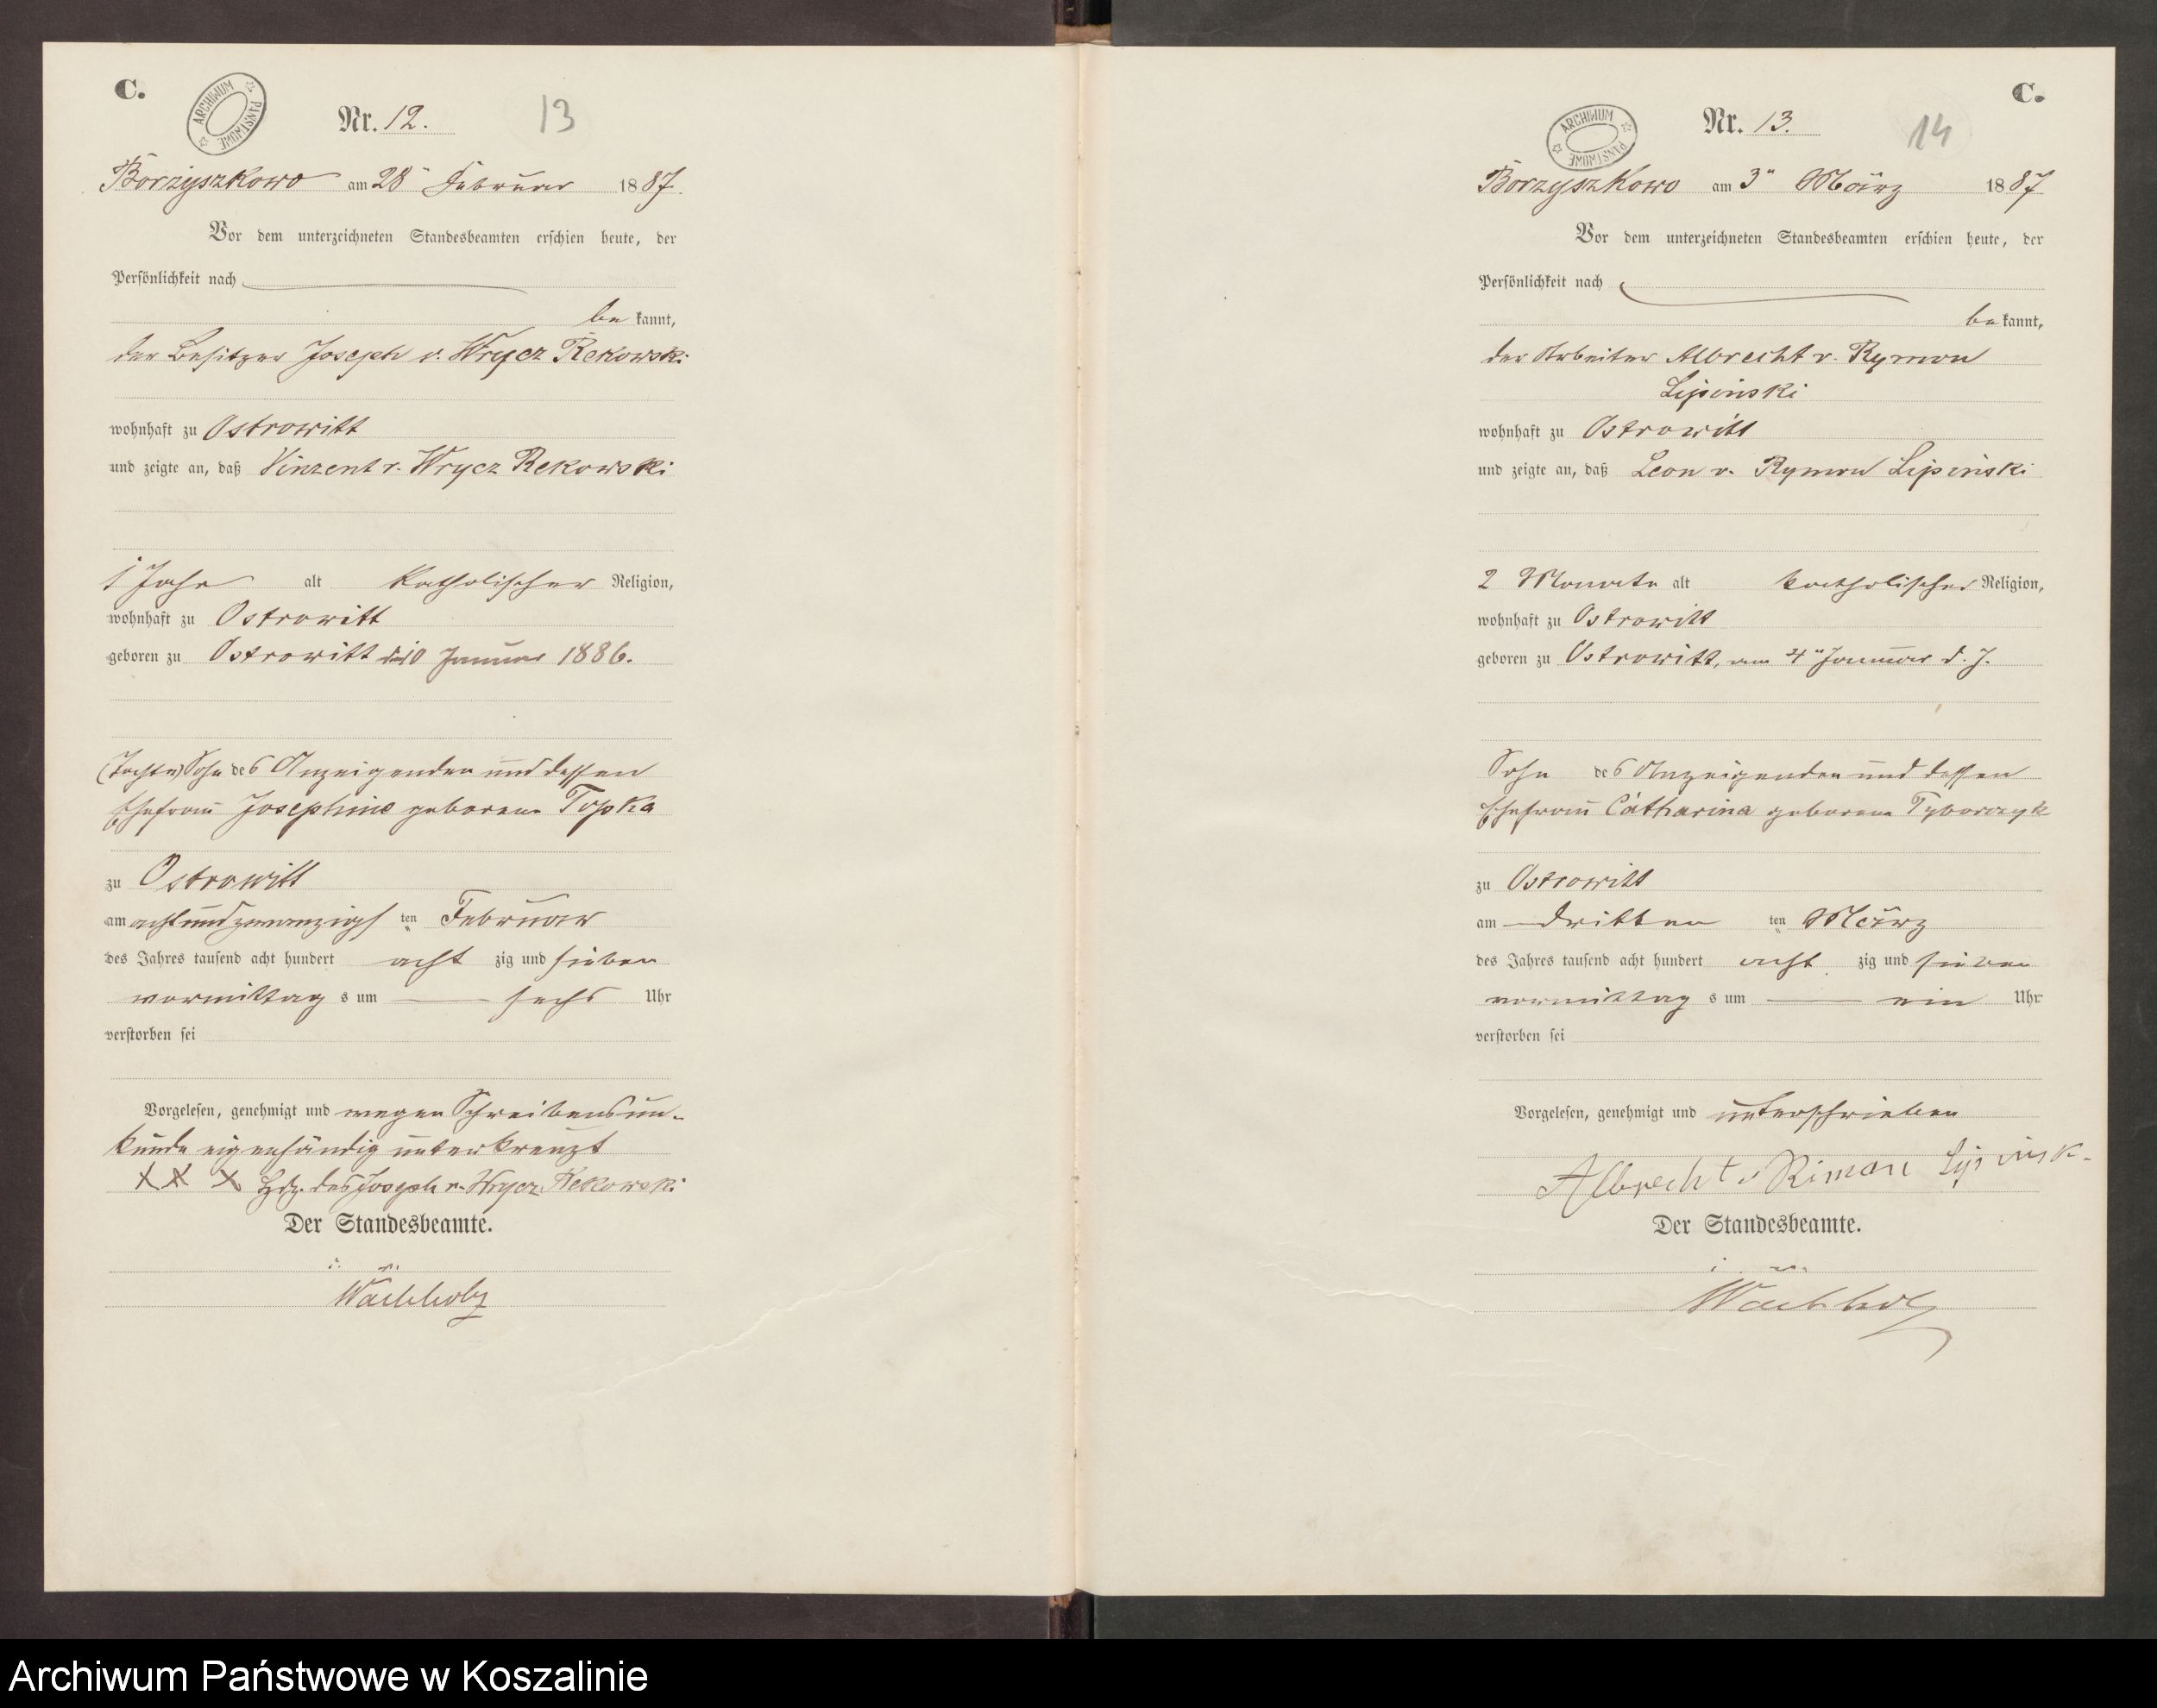 C.
ARCHIWUM PAŃSTWOWE
Nr. 12.
13
Borzyszkowo am 28" Februar 1887.
Vor dem unterzeichneten Standesbeamten erschien heute, der
Persönlichkeit nach
be kannt,
der Besitzer Joseph v. Wrycz Rekowski
wohnhaft zu Ostrowitt
und zeigte an, daß Vinzent v. Wrycz Rekowski
1 Jahr alt katholischer Religion,
wohnhaft zu Ostrowitt
geboren zu Ostrowitt den 10 Januar 1886.
(Tochter) Sohn des Anzeigenden und dessen
Ehefrau Josephine geborene Topka
zu Ostrowitt
am achtundzwanzigs ten Februar
des Jahres tausend acht hundert acht zig und sieben
vormittag s um sechs Uhr
verstorben sei
Vorgelesen, genehmigt und wegen Schreibensun-
kunde eigenhändig unterkreuzt
XX X Hdz. des Joseph v. Wrycz Rekowski
Der Standesbeamte.
i. V.
Wachholz
C.
ARCHIWUM PAŃSTWOWE
Nr. 13.
14
Borzyszkowo am 3" März 1887
Vor dem unterzeichneten Standesbeamten erschien heute, der
Persönlichkeit nach
be kannt,
der Arbeiter Albrecht v. Rymon
Lipinski
wohnhaft zu Ostrowitt
und zeigte an, daß Leon v. Rymon Lipinski
2 Monate alt katholischer Religion,
wohnhaft zu Ostrowitt
geboren zu Ostrowitt, am 4" Januar d. J.
Sohn des Anzeigenden und dessen
Ehefrau Catharina geborene Tyborczyk
zu Ostrowitt
am dritten ten März
des Jahres tausend acht hundert acht zig und sieben
vormittag s um ein Uhr
verstorben sei
Vorgelesen, genehmigt und unterschrieben
Albrecht v Rimon Lipinsk-
Der Standesbeamte.
i. V.
Wachholz
Archiwum Państwowe w Koszalinie